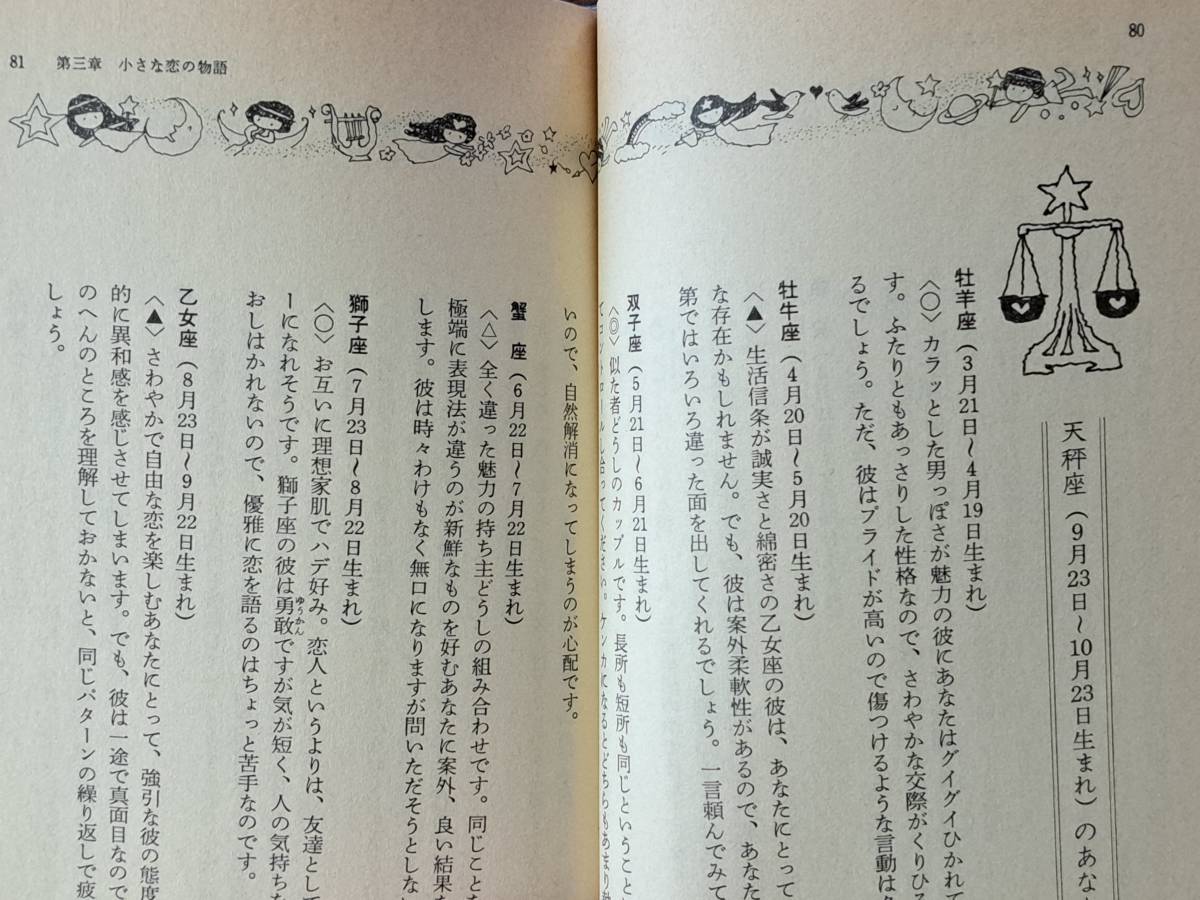 80
天秤座（9月23日〜10月23日生まれ）のあな
牡羊座（3月21日〜4月19日生まれ）
〈○〉カラッとした男っぽさが魅力の彼にあなたはグイグイひかれて
す。ふたりともあっさりした性格なので、さわやかな交際がくりひろ
るでしょう。ただ、彼はプライドが高いので傷つけるような言動は
牡牛座（4月20日〜5月20日生まれ）
〈▲〉生活信条が誠実さと綿密さの乙女座の彼は、あなたにとって
な存在かもしれません。でも、彼は案外柔軟性があるので、あなた
第ではいろいろ違った面を出してくれるでしょう。一言頼んでみて
双子座（5月21日〜6月21日生まれ）
〈◎〉似た者どうしのカップルです。長所も短所も同じということ
てコントロールし合ってください。ケンカになるとどちらもあまり
81 第三章 小さな恋の物語
いので、自然解消になってしまうのが心配です。
蟹 座（6月22日〜7月22日生まれ）
〈△〉全く違った魅力の持ち主どうしの組み合わせです。同じことを
極端に表現法が違うのが新鮮なものを好むあなたに案外、良い結果を
します。彼は時々わけもなく無口になりますが問いただそうとしな
獅子座（7月23日〜8月22日生まれ）
〈○〉お互いに理想家肌でハデ好み。恋人というよりは、友達として
ーになれそうです。獅子座の彼は勇敢ゆうかんですが気が短く、人の気持ちな
おしはかれないので、優雅に恋を語るのはちょっと苦手なのです。
乙女座（8月23日〜9月22日生まれ）
〈▲〉さわやかで自由な恋を楽しむあなたにとって、強引な彼の態度
的に異和感を感じさせてしまいます。でも、彼は一途で真面目なので
のへんのところを理解しておかないと、同じパターンの繰り返しで疲
しょう。